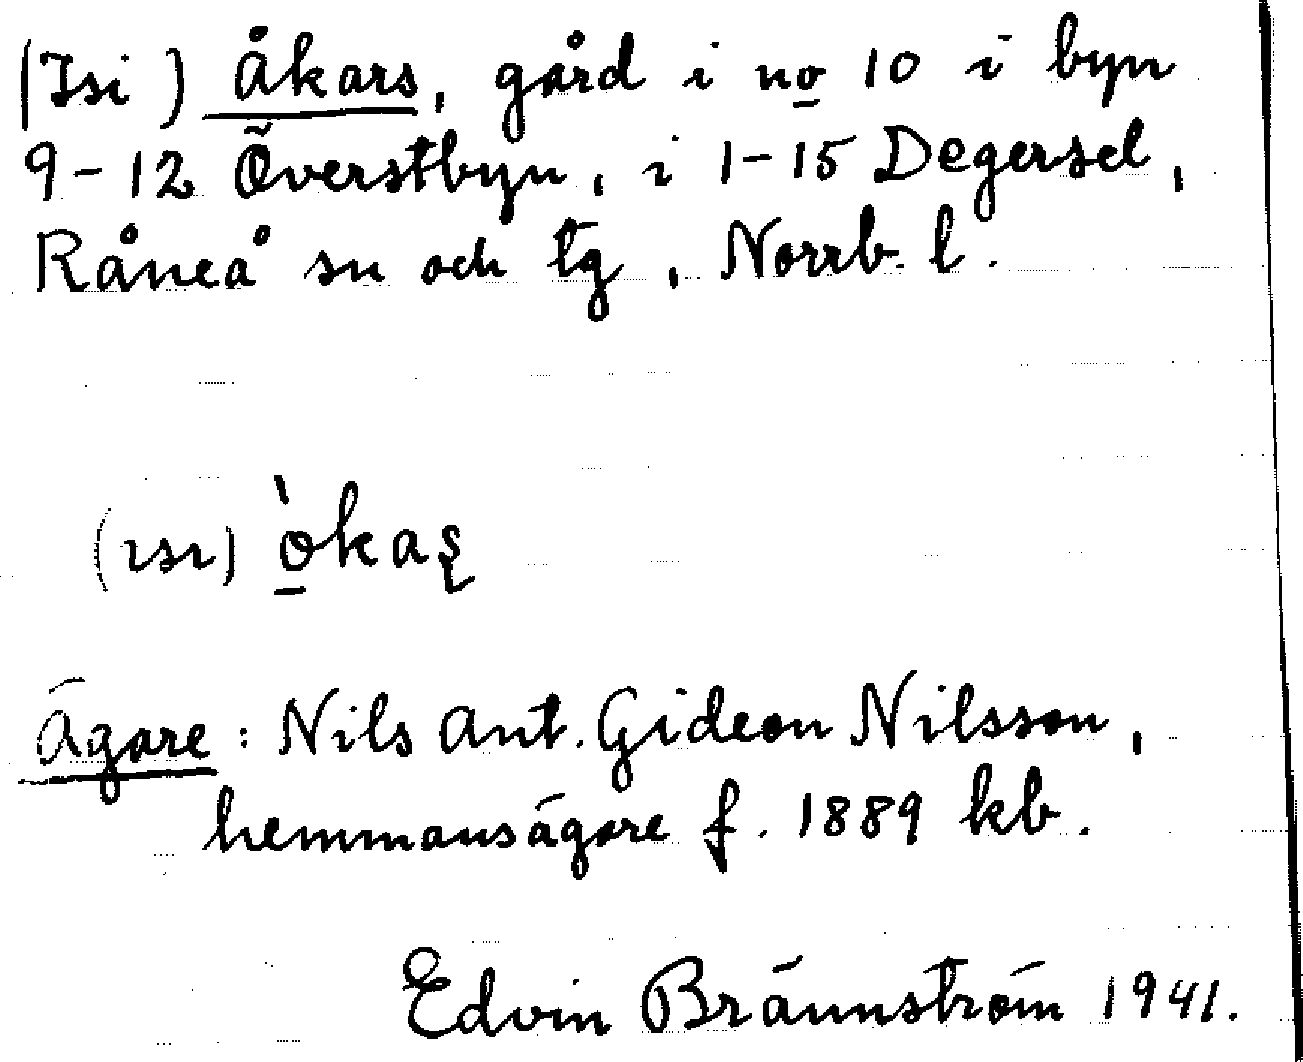 (Isi) Åkars, gård i no 10 i byn
9-12 Överstbyn, i 1-15 Degersel,
Råneå sn och tg, Norrb. l.
(ısı) `o̱kaʂ
Ägare: Nils Ant. Gideon Nilsson,
hemmansägare f. 1889 kb.
Edvin Brännström 1941.